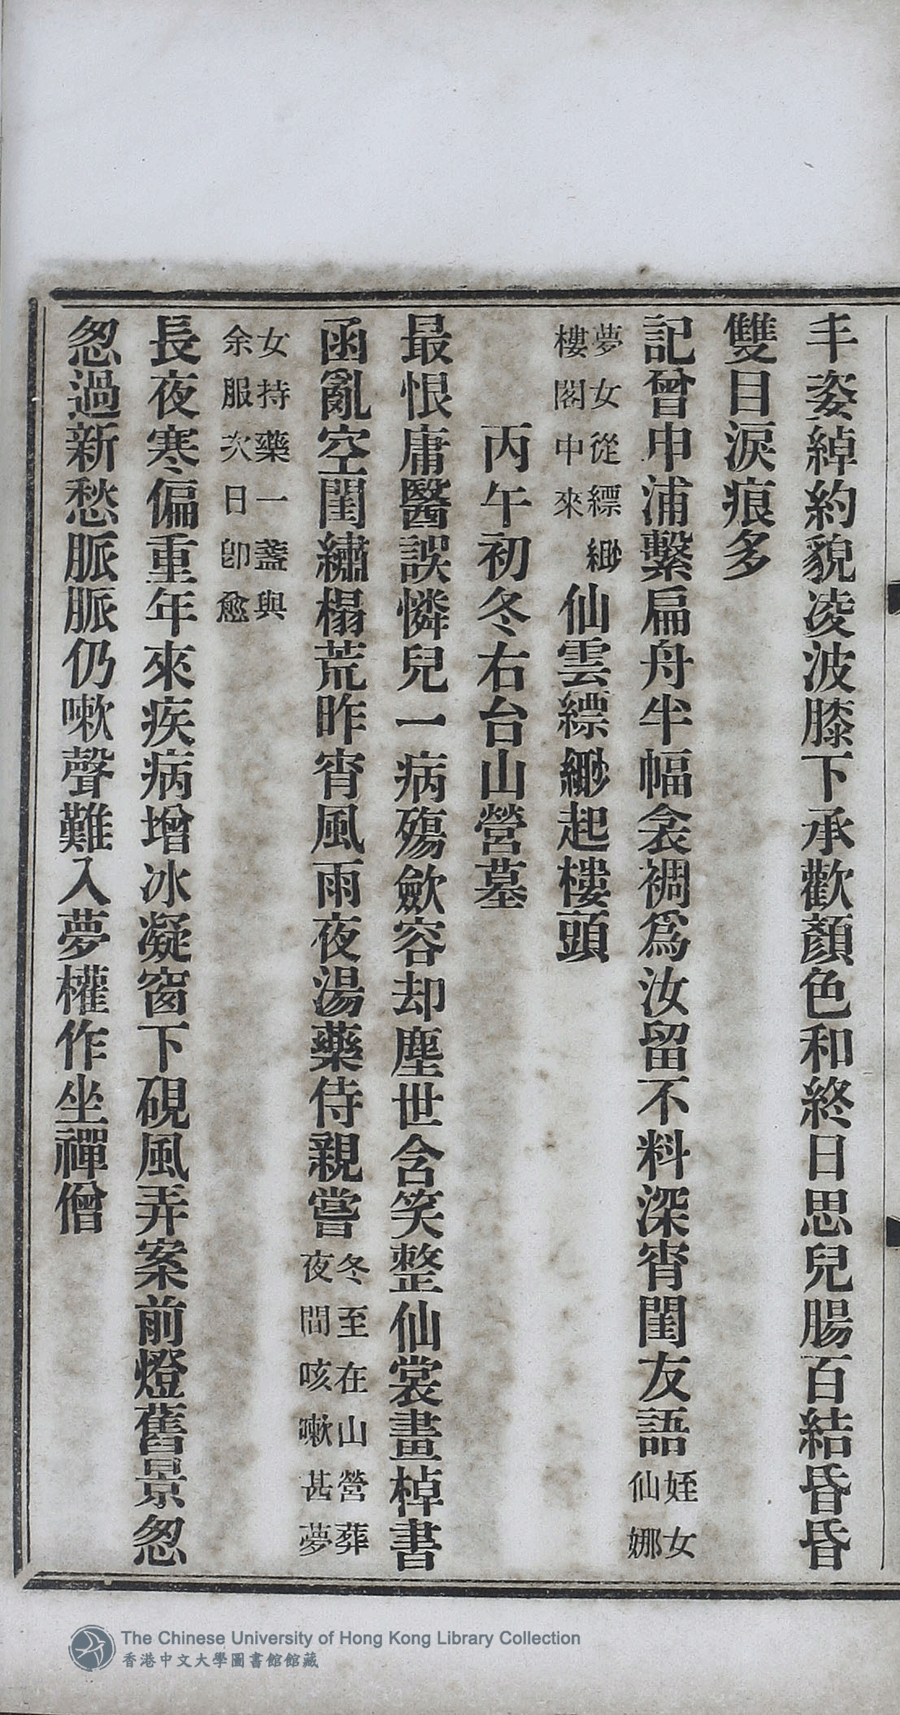 丰姿綽約貌凌波膝下承歡顏色和終日思兒腸百結昏昏
雙目淚痕多
記曾申浦繫扁舟半幅衾裯爲汝留不料深宵閨友語姪女仙娜
夢女從縹緲樓閣中來仙雲縹緲起樓頭
丙午初冬右台山營墓
最恨庸醫誤憐兒一病殤歛容却塵世含笑整仙裳畫棹書
函亂空閨繡榻荒昨宵風雨夜湯藥侍親嘗冬至在山營葬夜間咳嗽甚夢
女持藥一盞與余服次日卽愈
長夜寒偏重年來疾病增冰凝窗下硯風弄案前燈舊景怱
怱過新愁脈脈仍嗽聲難入夢權作坐禪僧
The Chinese University of Hong Kong Library Collection
香港中文大學圖書館館藏